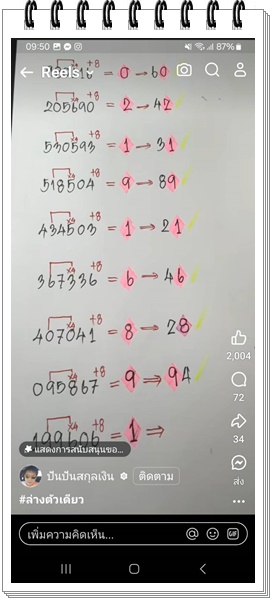 09:50 87%
Reels
+8
= 0 → 60
x4 +8
205690 = 2 → 42
x4 +8
530593 = 1 → 31
x4 +8
518504 = 9 → 89
x4 +8
434503 = 1 → 21
x4 +8
367336 = 6 → 46
x4 +8
407041 = 8 → 28
x4 +8
095867 = 9 ⇒ 94
x4 +8
199606 = 1 ⇒
2,004
72
34
ส่ง
แสดงการสนับสนุนขอ...
ปันปันสกุลเงิน ติดตาม
#ล่างตัวเดียว
เพิ่มความคิดเห็น... GIF